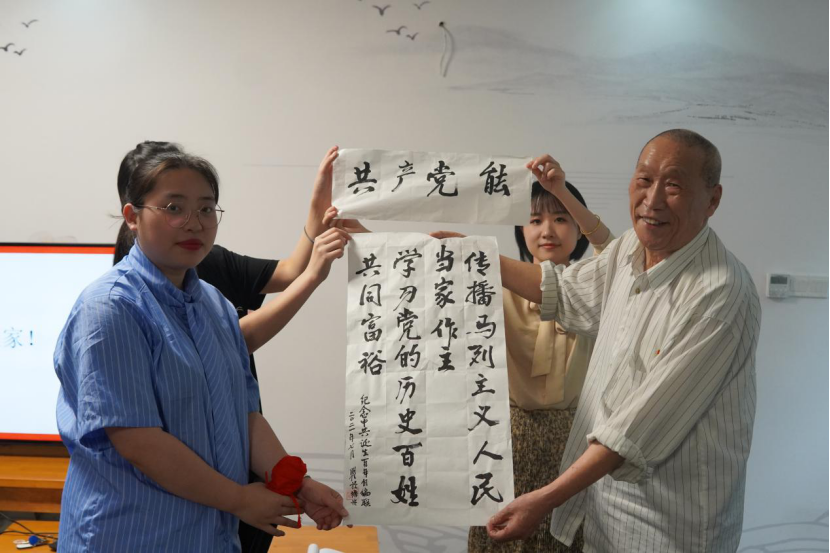 共产党能
传播马列主义人民
当家作主
学习党的历史百姓
共同富裕
纪念中共诞生百年
二〇二一年七月
家!